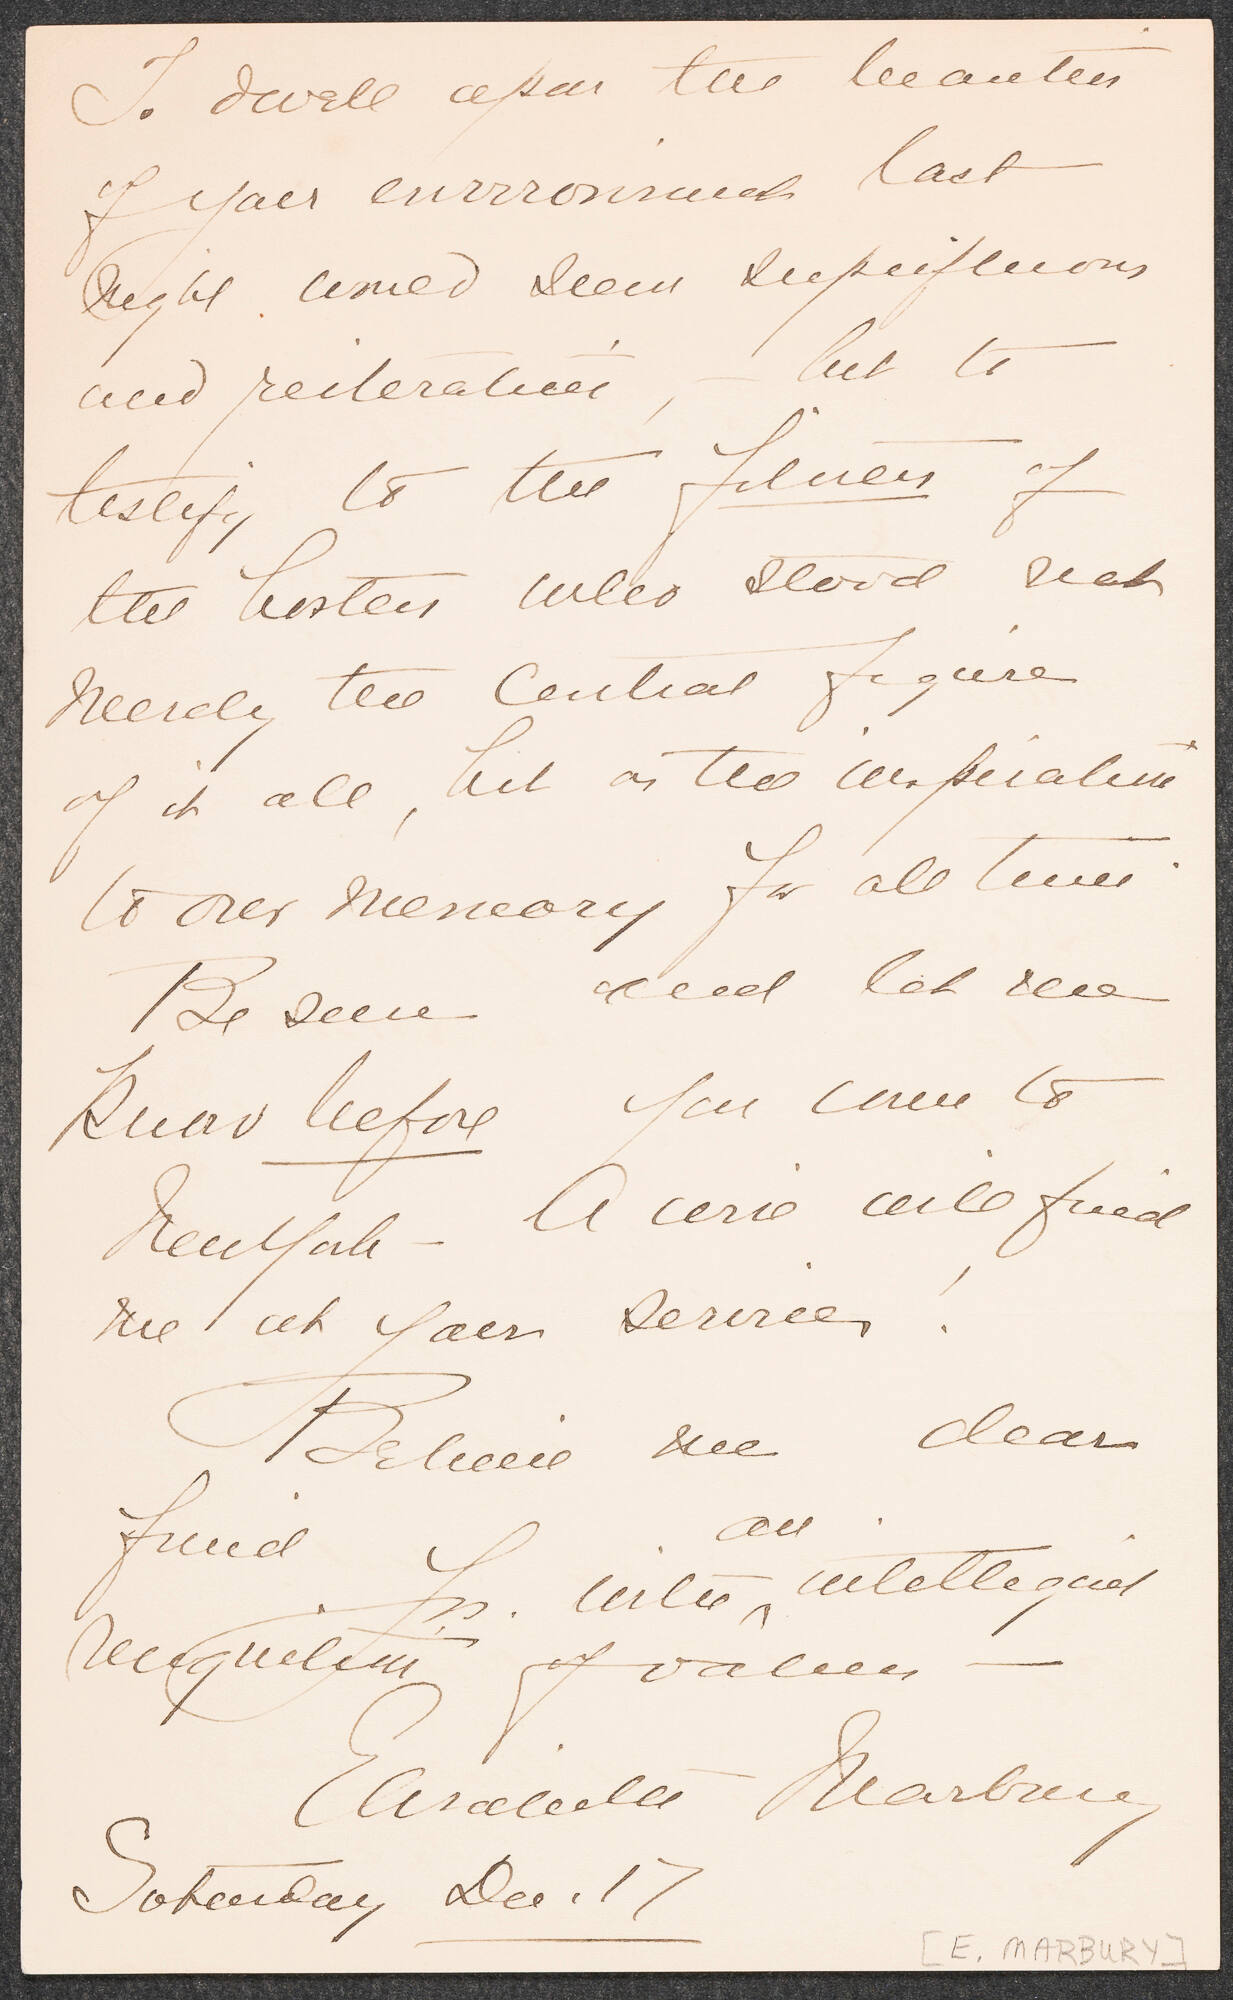 To dwell upon the beauties
of your environment last
night would seem superfluous
and reiteration, — but to
testify to the fitness of
the hostess who stood not
merely the central figure
of it all, but as the inspiration
to our memory for all time.
Be sure and let me
know before you come to
New York — A wire will find
me at your service!
Believe me dear
friend
Yrs. with an intelligent
recognition of values —
Elisabeth Marbury
Saturday Dec. 17
[E. MARBURY]